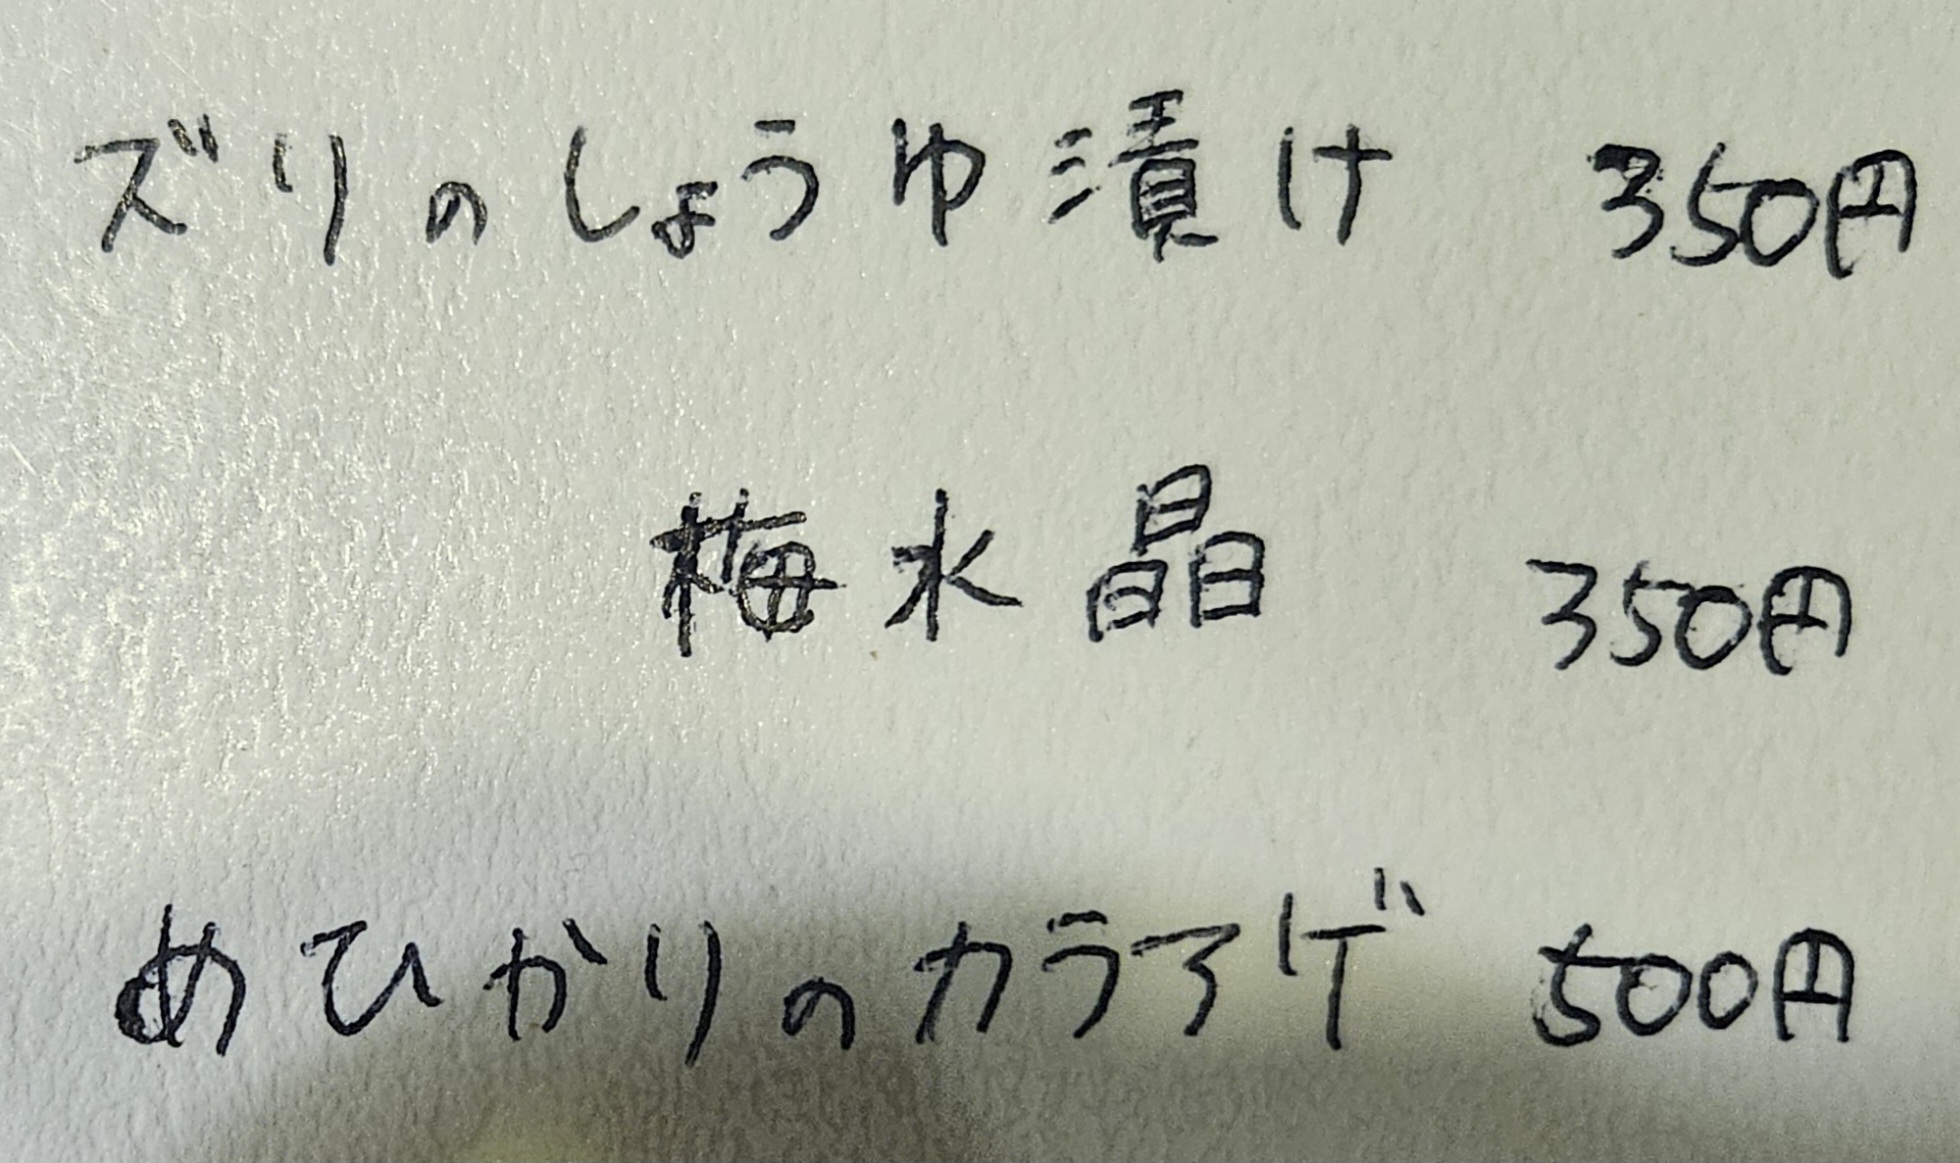 ズリのしょうゆ漬け 350円
梅水晶 350円
めひかりのカラアゲ 500円